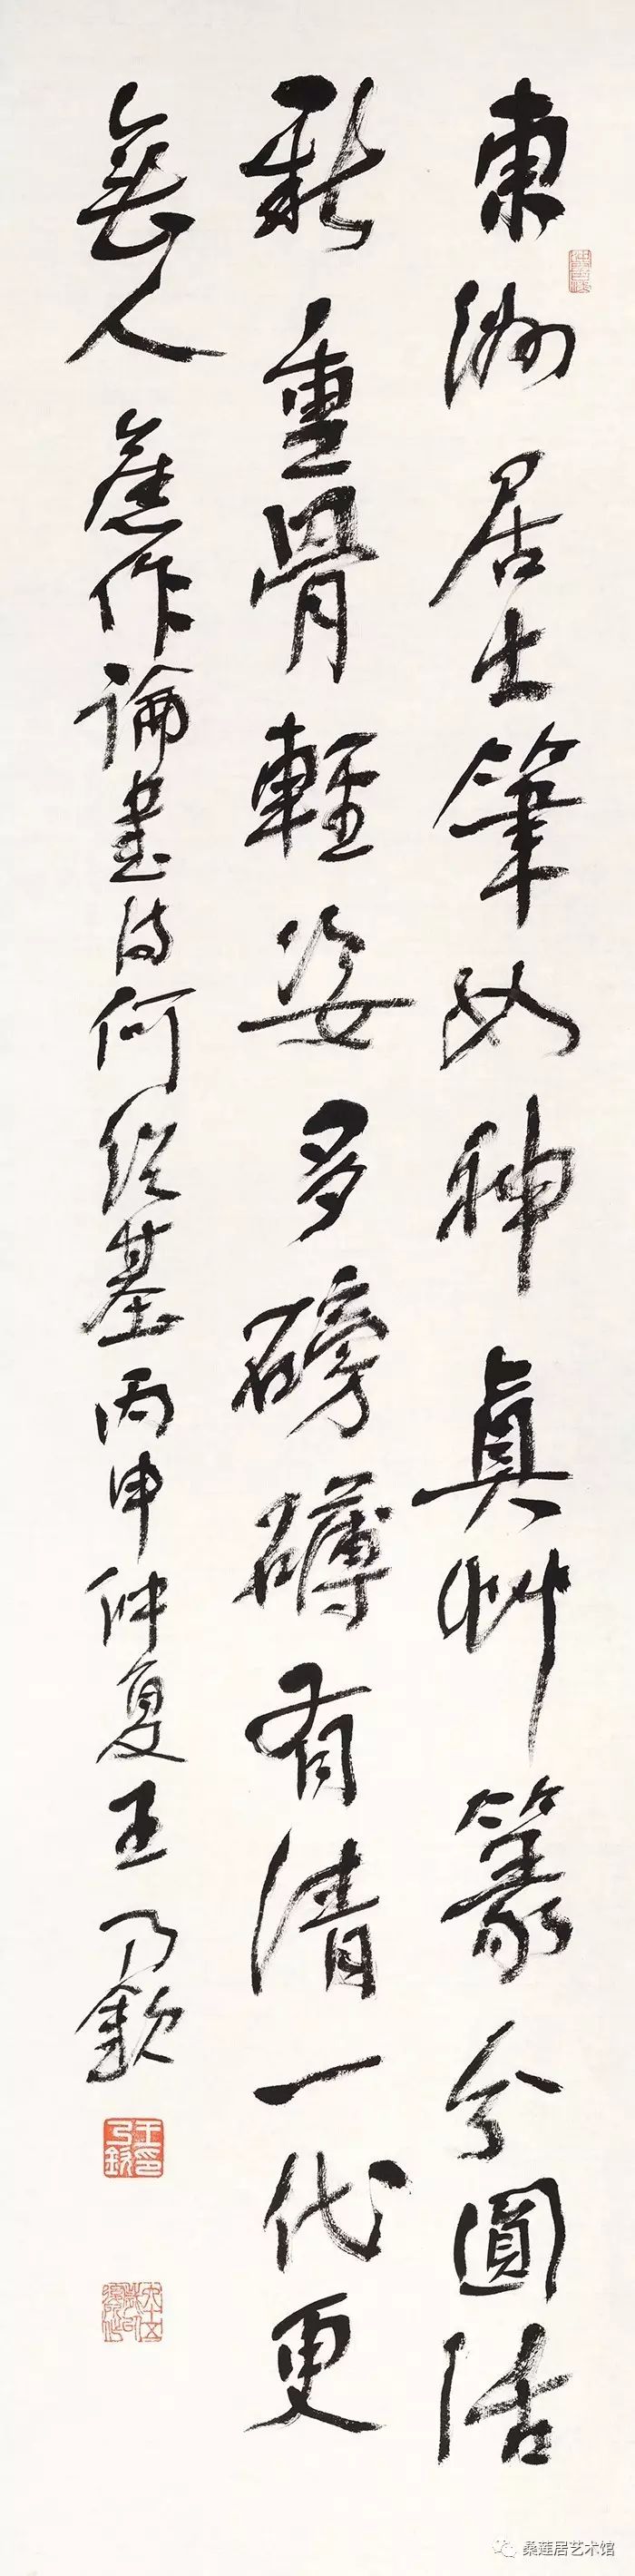 東洲居士筆如神眞艸篆分圓活
新重骨輕姿多磅礴有清一代更
無人
舊作論書詩何紹基丙申仲夏王乃欽
王乃欽印
桑莲居艺术馆